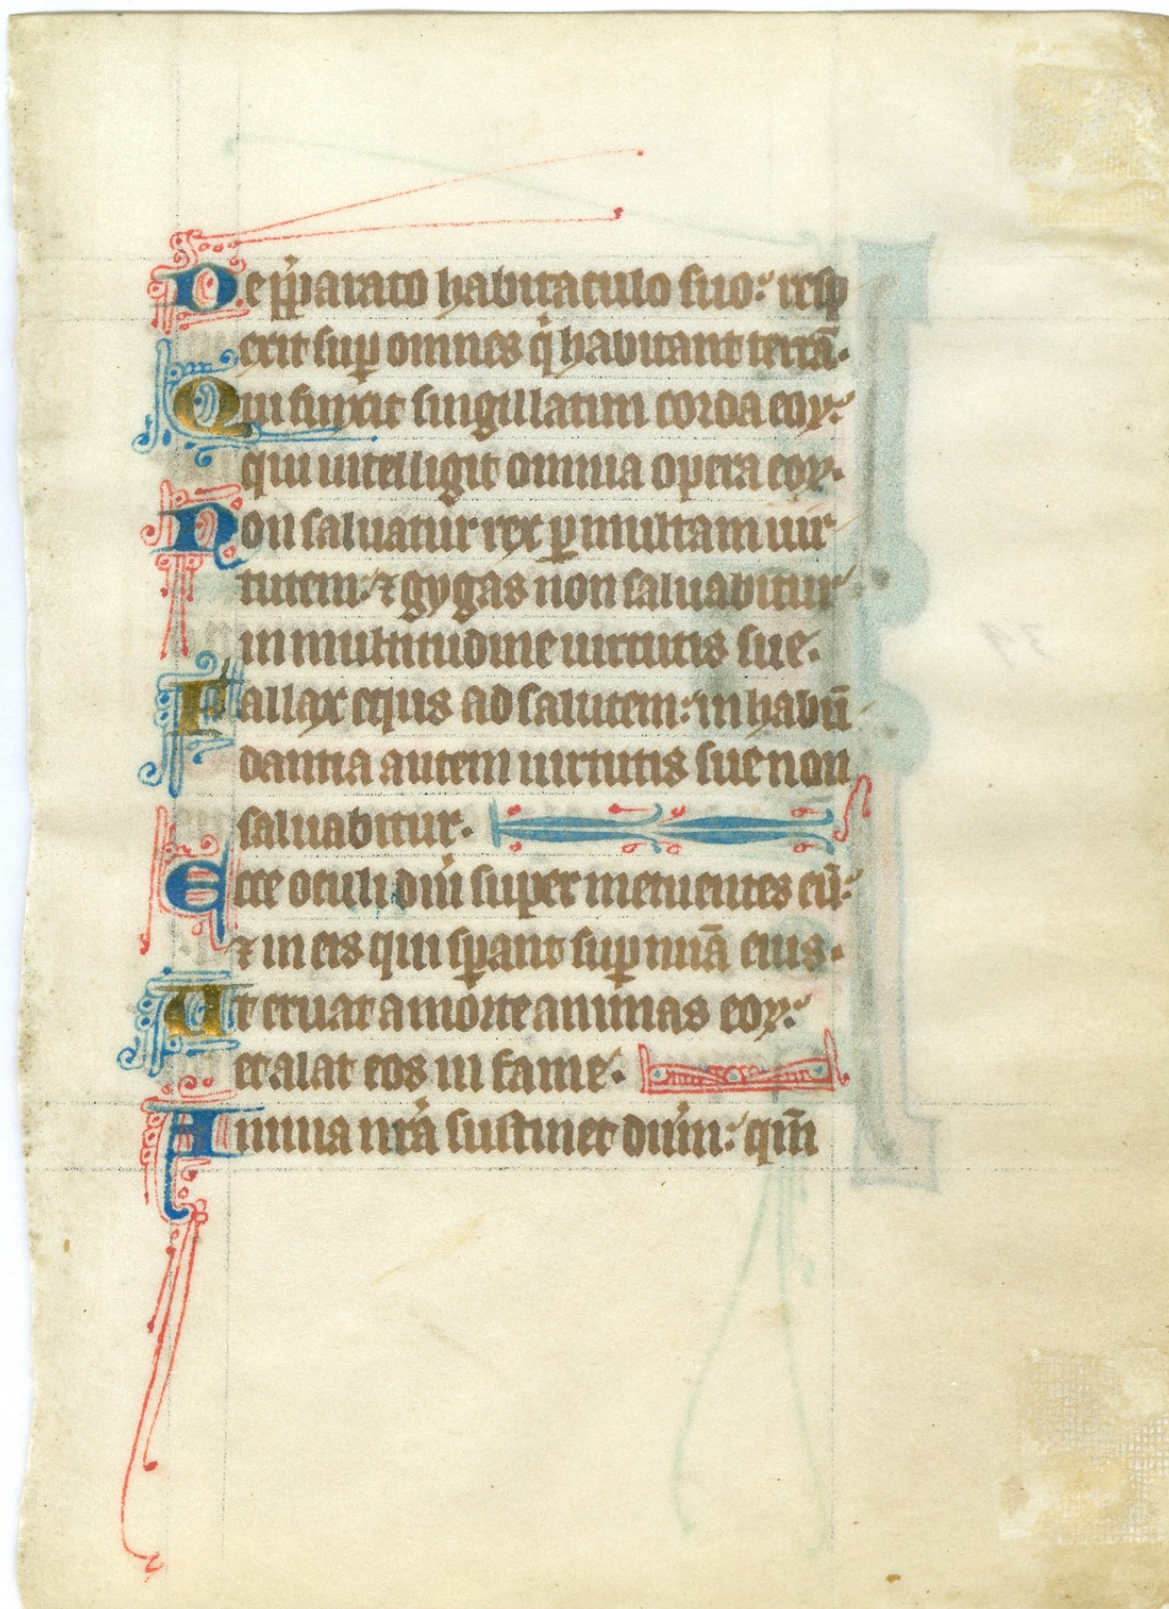 De p̄parato habitaculo suo: resp
exit sup omnes qͥ habitant terrā.
Qui finxit singillatim corda eoꝝ:
qui intelligit omnia opera eoꝝ.
Non saluatur rex ꝑ multam uir
tutem: ⁊ gygas non saluabitur
in multitudine uirtutis sue.
Fallax equs ad salutem: in habū
dantia autem uirtutis sue non
saluabitur.
Ecce oculi dn̄i super metuentes eū:
⁊ in eis qui sꝑant sup mīa eius.
Ut eruat a morte animas eoꝝ:
et alat eos in fame.
Anima nr̄a sustinet dnm̄: qm̄